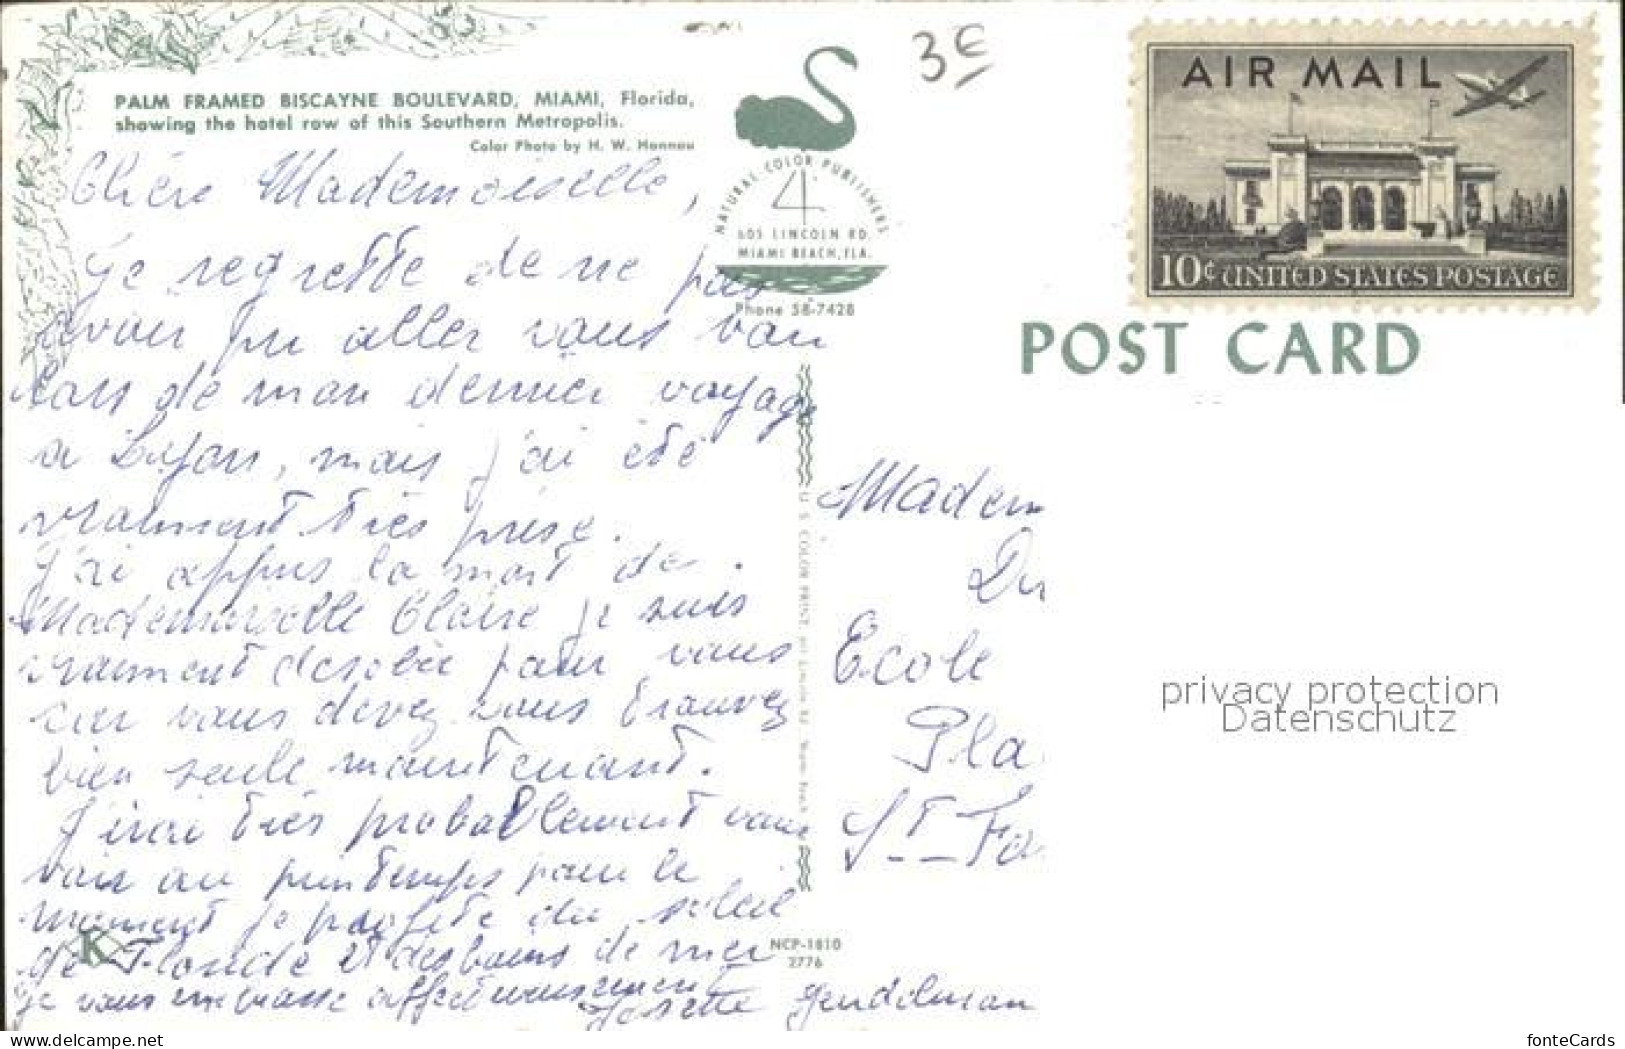 PALM FRAMED BISCAYNE BOULEVARD, MIAMI, Florida,
showing the hotel row of this Southern Metropolis.
Color Photo by H. W. Hannau
NATURAL COLOR PUBLISHERS
605 LINCOLN RD.
MIAMI BEACH, FLA.
Phone 58-7428
3€
AIR MAIL
10¢ UNITED STATES POSTAGE
POST CARD
Chère Mademoiselle,
Je regrette de ne pas
avoir pu aller vous voir
lors de mon dernier voyage
à Lyon, mais j'ai été
vraiment très prise.
J'ai appris la mort de
Mademoiselle Claire je suis
vraiment desolée pour vous
car vous devez vous trouvez
bien seule maintenant.
J'irai très probablement vous
voir au printemps pour le
moment je profite du soleil
de Floride et des bains de mer
Je vous embrasse affectueusement
Josette Gendelman
K
NCP-1810
2776
U. S. COLOR PRINT
Madem
Du
Ecole
Pla
St Fo
privacy protection
Datenschutz
www.delcampe.net
fonteCards